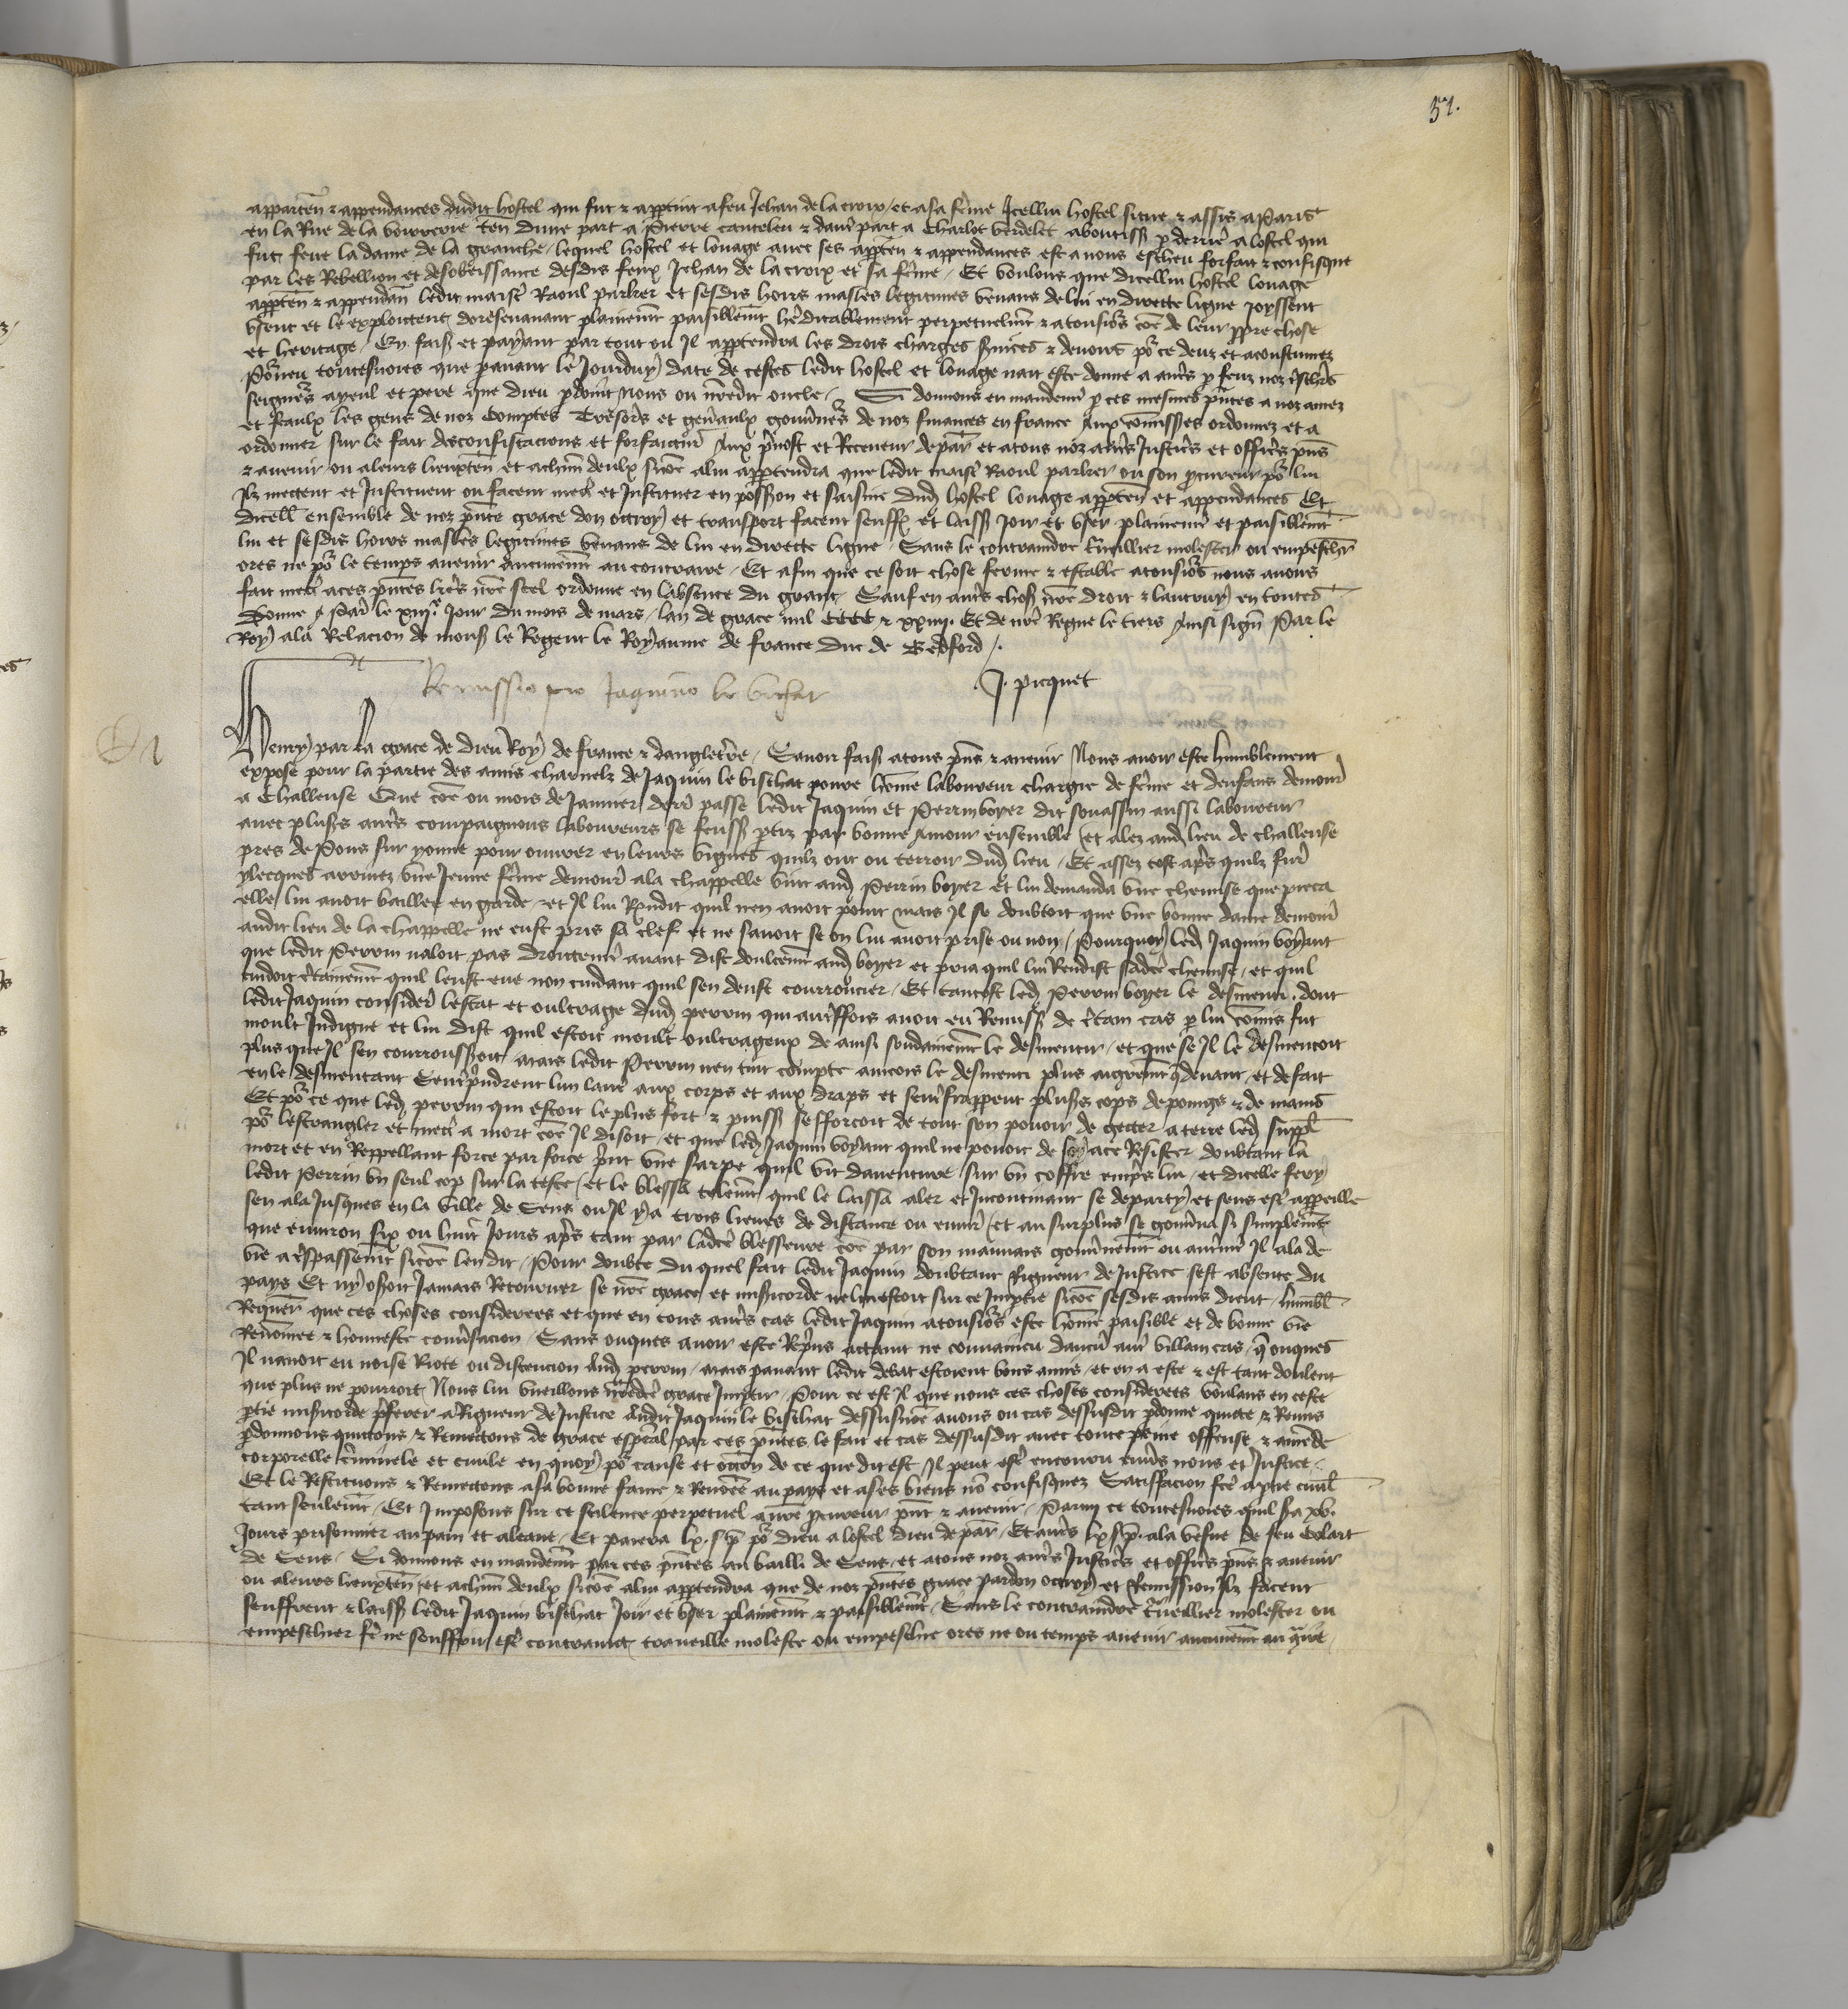 51.
apparten̄ & appendances dudit hostel qui fut & appartint a feu Jehan de la croix / et a sa fēme Icellui hostel situe & assis a Paris
en la Rue de la voirrerie ten̄ dune part a Pierre canteleu & dautr̄ part a Charlot verdelet aboutiss̄ p derrier̄ a lostel qui
fut feue la dame de la granche / lequel hostel et louage auec ses apparten̄ & appendances est a nous escheu forfait & confisque
par les Rebellion et desobeissance desdis feux Jehan de la croix et sa fēme / Et voulons que dicellui hostel louage
apparten̄ & appendan̄ ledit maistr̄ Raoul parker et sesdis hoirs masles legitimes venans de lui en directe ligne joyssent
vsent et le exploitent doresenauant plainemēt paisiblemēt hereditablement perpetuelmēt & a tousiours cōe de leur ppre chose
et heritage / En fais̄ et payant par tout ou Il appartendra les drois charges s̄uices & deuoirs por ce deuz et acoustumez
Pourueu toutesuoies que pauant le Jourduy date de cestes ledit hostel et louage nait este donne a autr̄s p feuz noz t̄schr̄s
seigneurs ayeul et pere que dieu pdoint nous ou nr̄edit oncle / Si donnons en mandemēt p ces mesmes pn̄tes a noz amez
et feaulx les gens de noz Comptes Tresor̄s et gen̄aulx gouun̄eurs de noz finances en france Aux cōmissr̄es ordonnez et a
ordonner sur le fait des confiscacions et forfaictur̄ Aux p̄uost et Receueur de par̄ et a tous noz autr̄s Justicr̄s et officr̄s pn̄s
& auenir ou a leurs lieuxten̄ et a chūn deulx sicōe a lui appartendra que ledit maistr̄ Raoul parker ou son pcureur por lui
Ilz mettent et Instituent ou facent mettr̄ et Instituer en possion et saisine dud̄ hostel louage apparten̄ et appendances Et
dicell̄ ensemble de noz pn̄te grace don ottroy et transport facent seuffr̄ et laiss̄ Joir et vser plainemēt et paisiblemēt
lui et sesdis hoirs masles legitimes venans de lui en directe ligne / Sans le contraindre trauillier molester ou empeschr̄
ores ne por le temps auenir aucunemēt au contraire / Et afin que ce soit chose ferme & estable a tousiours nous auons
fait mettr̄ a ces pn̄tes lr̄es nr̄e scel ordonne en labsence du grant / Sauf en autr̄s chos̄ nr̄e droit & lautruy en toutes
Donne a Par̄ le xiiij.e Jour du mois de mars / lan de grace mil CCCC & xxiiij. Et de nr̄e Regne le tiers Ainsi sign̄ Par le
Roy a la Relacion de mons̄ le Regent le Royaume de france duc de Bedford /.
J. picquet
Remissio pro Jaquino le bischat
Henry par la grace de dieu Roy de france & dangleterre / Sauoir fais̄ a tous pn̄s & auenir Nous auoir este humblement
expose pour la partie des amis charnelz de Jaquin le bischat poure hōme laboureur chargie de fēme et denfans demour̄
a Challeuse Que cōe ou mois de Januier derr̄ passe ledit Jaquin et Perrin boyer dit souassin aussi laboureur
auec plus̄rs autr̄s compaignons laboureurs se feuss̄ ptiz par bonne Amour ensemble / et alez aud̄ lieu de challeuse
pres de Pons sur yonne pour ouurer en leurs vignes quilz ont ou terroir dud̄ lieu / Et assez tost apr̄s quilz fur̄
Ylecques arriuez vne Jeune fēme demour̄ a la chappelle vint aud̄ Perrin boyer et lui demanda vne chemise que pieca
elle lui auoit baillee en garde / et Il lui Rendit quil nen auoit point mais Il se doubtoit que vne bonne dame demour̄
audit lieu de la chappelle ne eust pris sa clef et ne sauoit se on lui auoit prise ou non / Pourquoy led̄ Jaquin voyant
que ledit Perrin naloit pas droittemēt auant dist doulcemēt aud̄ boyer et pria quil lui Rendist sadicte chemise / et quil
cuidoit c̄tainemēt quil leust eue non cuidant quil sen deust courroucier / Et tantost led̄ Perrin boyer le desmenti. dont
ledit Jaquin considere lestat et oultrage dud̄ perrin qui autr̄ffois auoit eu Remiss̄ de c̄tain cas p lui cōmis fut
moult Indigne et lui dist quil estoit moult oultrageux de ainsi soudainemēt le desmentir / et que se Il le desmentoit
plus que Il sen courroussoit mais ledit Perrin nen tint compte aincois le desmenti plus aigremēt q̄ deuant / et de fait
en le desmentant sentrep̄ndrent lun lautr̄ aux corps et aux draps et sentr̄frappent plus̄rs cops de poings & de mains
Et por ce que led̄ perrin qui estoit le plus fort & puiss̄ sefforcoit de tout son pouoir de getter a terre led̄ suppl̄
por lestrangler et mettr̄ a mort cōe Il disoit / et que led̄ Jaquin voyant quil ne pouoit de soy a ce Resister doubtant la
mort et en Reppellant force par force p̄nt vne sarpe quil vit dauenture sur vn coffre empr̄s lui / et dicelle fery
ledit Perrin vn seul cop sur la teste / et le blessa telemēt quil le laissa aler et Incontinant se departy et sens estr̄ appareille
sen ala Jusques en la ville de Sens ou Il y a trois lieues de distance ou enuir̄ / et au surplus se gouuna si simplemēt
que enuiron six ou huit Jours apr̄s tant par ladicte blesseure cōe par son mauuais gouunemēt ou autremēt Il ala de
vie a tr̄spassemēt sicōe len dit / Pour doubte du quel fait ledit Jaquin doubtant Rigueur de Justice sest absente du
pays Et ny osoit Jamais Retourner se nr̄e grace et mis̄icorde ne lui estoit sur ce Impartie sicōe sesdis amis dient / humbl̄
Requer̄ que ces choses considerees et que en tous autr̄s cas ledit Jaquin a tousiours este hōme paisible et de bonne vie
Renōmee & honneste conu̾sacion / Sans onques auoir este Repris attaint ne conuaincu daucū autr̄ villain cas / q̄ onques
Il nauoit eu noise Riote ou discencion aud̄ perrin / mais pauant ledit debat estoient bons amis / et en a este & est tant doulent
que plus ne pourroit Nous lui vueillons nr̄edicte grace Impartir / Pour ce est Il que nous ces choses considerees voulans en ceste
ptie mis̄icorde p̄ferer a Rigueur de Justice Audit Jaquin le bischat dessusnōe auons ou cas dessusdit pdonne quicte & Remis
pdonnons quictons & Remettons de grace esp̄al par ces pn̄tes le fait et cas dessusdit auec toute peine offense & amēde
corporelle c̄iminele et ciuile en quoy por cause et occōn de ce que dit est Il peut estr̄ encouru enu̾s nous et Justice.
Et le Restituons & Remettons a sa bonne fame & Renōee au pays et a ses biens nō confisquez Satisfacion fc̄e a ptie ciuil̄
tant seulemēt / Et Imposons sur ce silence perpetuel a nr̄e pcureur pn̄t & auenir / Parmy ce toutesuoies quil sera xv.
Jours prisonnier au pain et a leaue / Et paiera lx. s p por dieu a lostel dieu de par̄ / Et autr̄s lx s p. a la vesue de feu Colart
de Sens / Si donnons en mandemēt par ces pn̄tes au bailli de Sens / et a tous noz autr̄s Justicr̄s et officr̄s pn̄s & auenir
ou a leurs lieuxten̄ / et a chūn deulx sicōe a lui appartendra que de noz pn̄tes grace pardon ottroy et Remission Ilz facent
seuffrent & laiss̄ ledit Jaquin bischat Joir et vser plainemēt & paisiblemēt / Sans le contraindre trauillier molester ou
empeschier fr̄e ne souffrir estr̄ contraint trauaille moleste ou empeschie ores ne ou temps auenir aucunemēt au q̄ire /